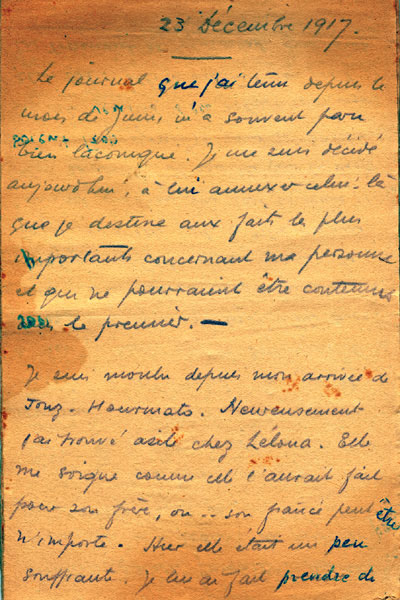 23 Décembre 1917.
Le journal que j'ai tenu depuis le
mois de Juin m'a souvent paru
bien laconique. Je me suis décidé
aujourd'hui, à lui annexer celui-là
que je destine aux faits les plus
importants concernant ma personne
et qui ne pourraient être contenus
dans le premier. —
Je suis moulu depuis mon arrivée de
Touz-Hourmato. Heureusement
j'ai trouvé asile chez Léloua. Elle
me soigne comme elle l'aurait fait
pour son frère, ou .. son fiancé peut être
n'importe. Hier elle était un peu
souffrante. Je lui ai fait prendre de